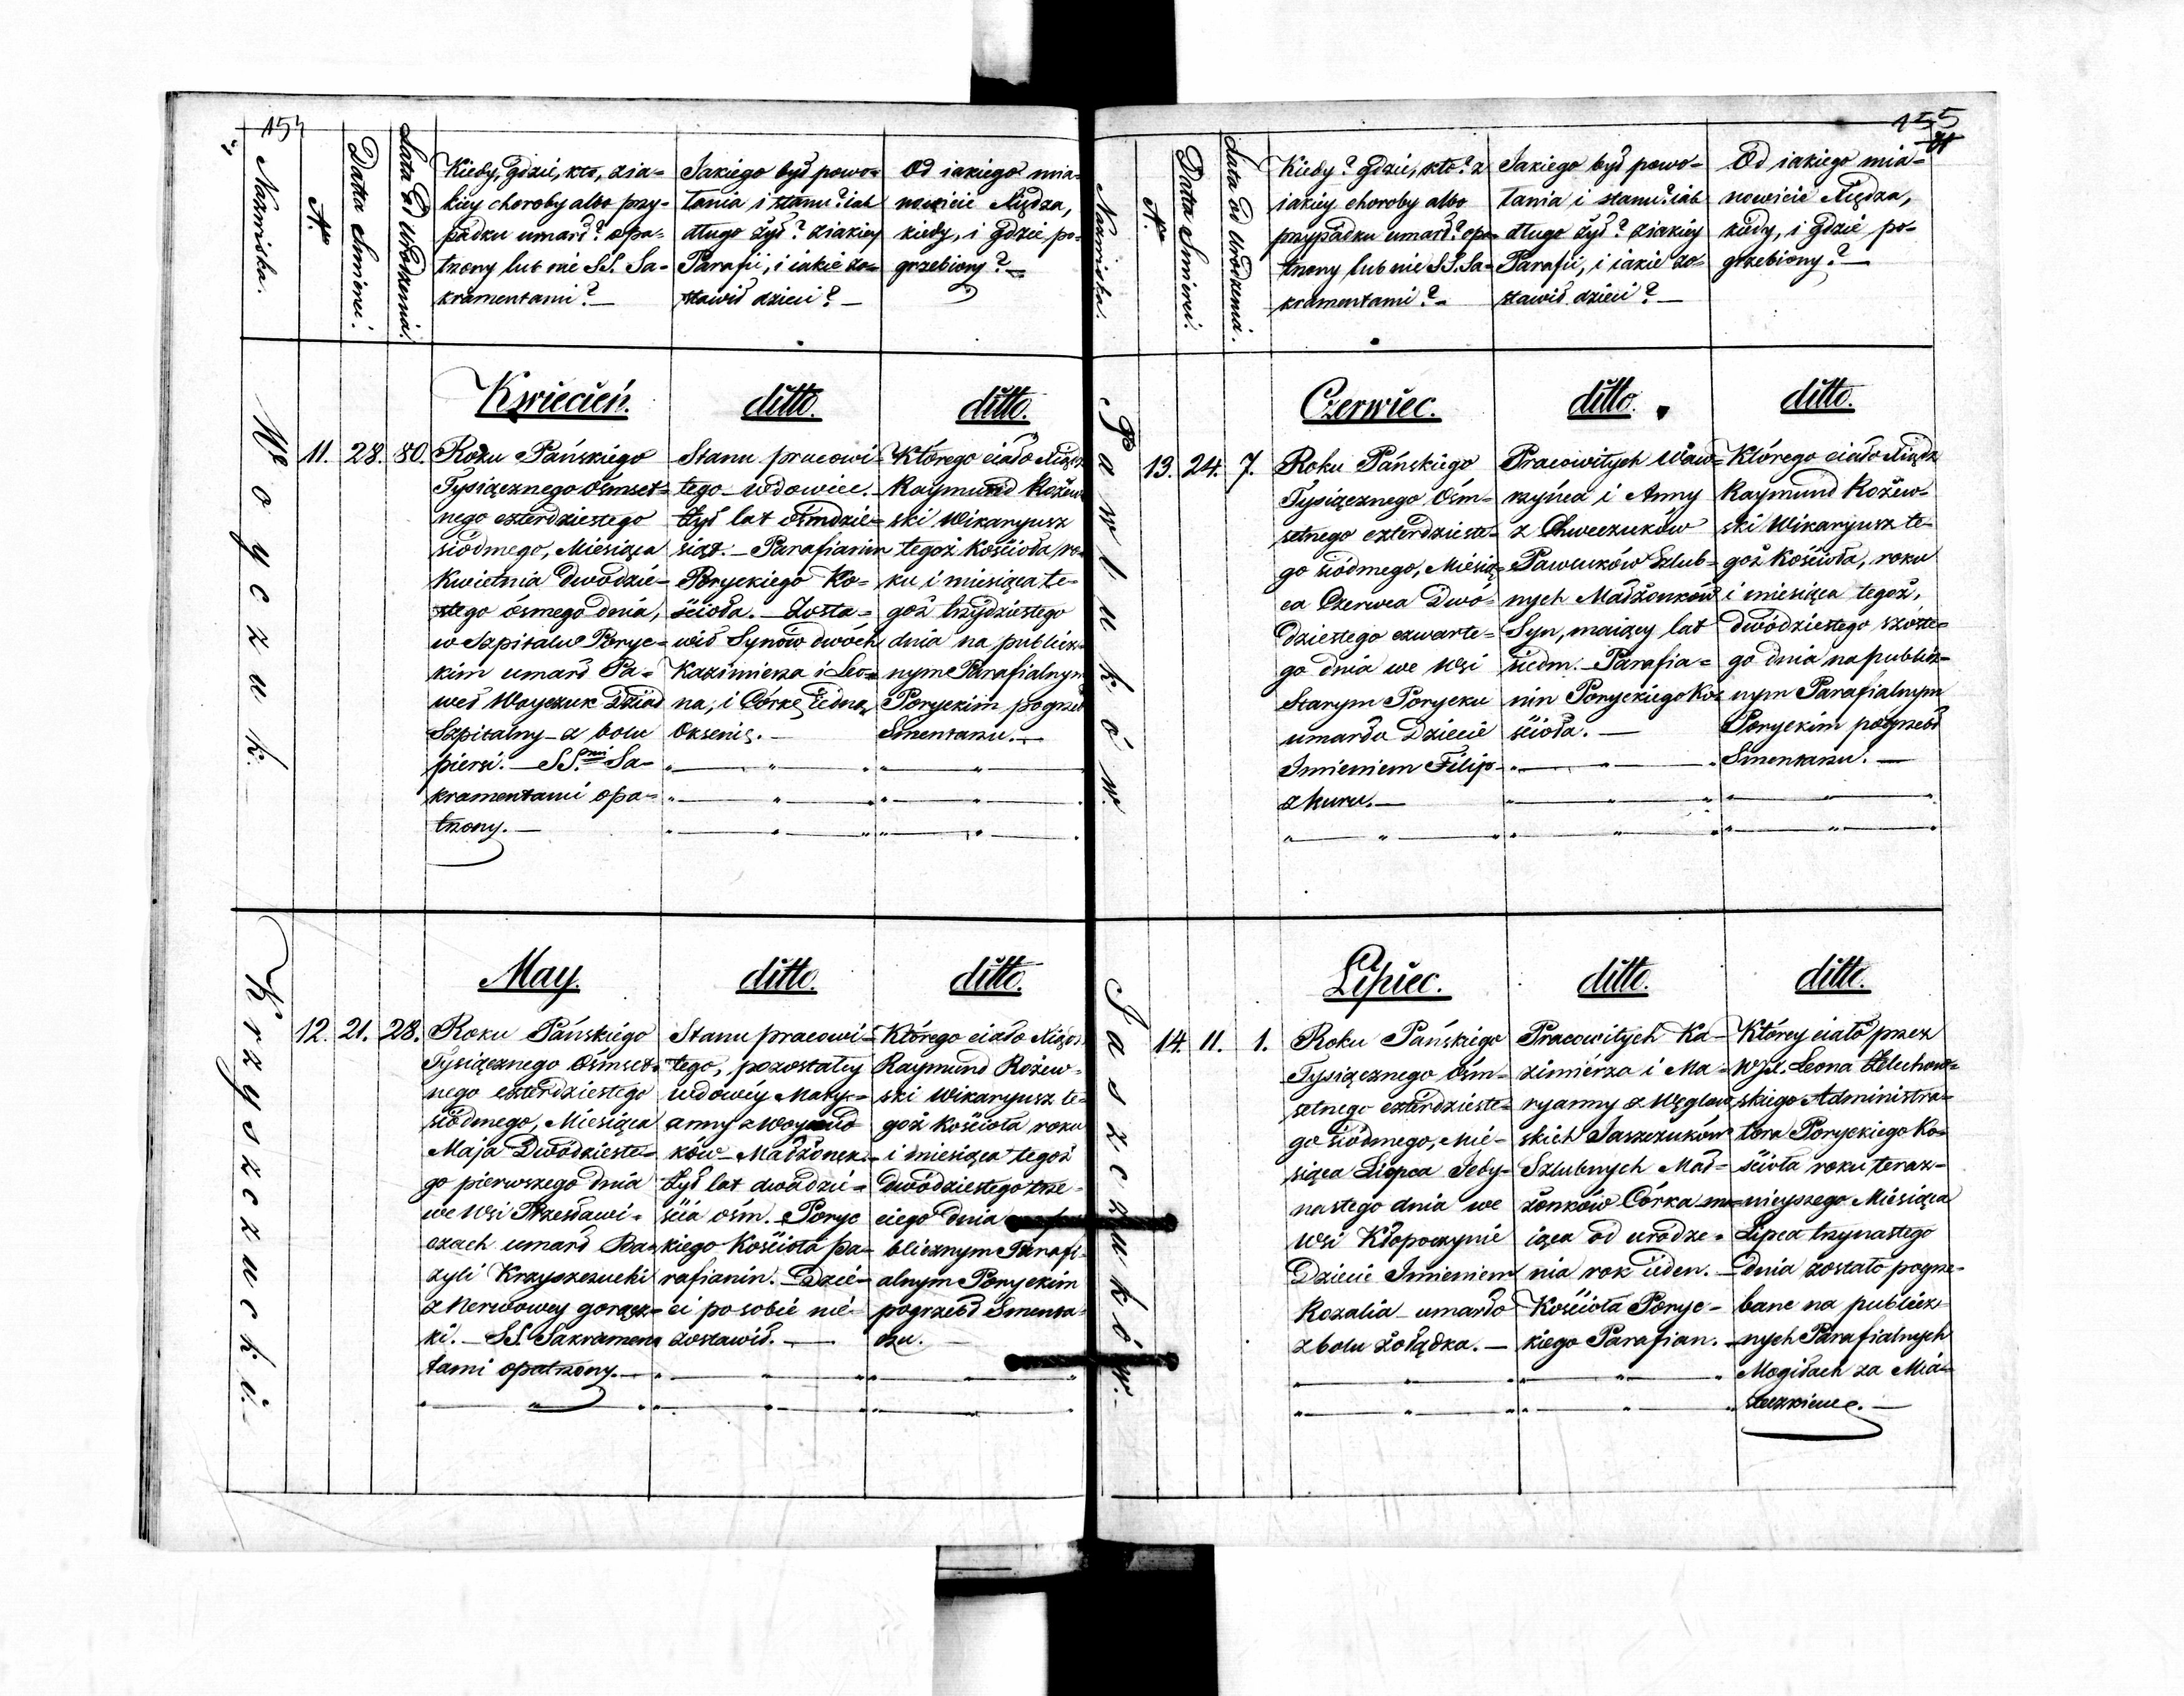 154
Nazwisko.
Nro
Datta Śmierci.
Lata od Urodzenia.
Kiedy, gdzie, kto, z ia-
kiey choroby albo przy-
padku umarł? opa-
trzony lub nie SS. Sa-
kramentami? —
Jakiego był powo-
łania i stanu? iak
długo żył? z iakiey
Parafii, i iakie zo-
stawił dzieci? —
Od iakiego mia-
nowicie Xiędza,
kiedy, i gdzie po-
grzebiony? —
Kwiecień.
ditto.
ditto.
Woyczuk.
11. 28. 80.
Roku Pańskiego
Tysiącznego Ośmset-
nego czterdziestego
siódmego, Miesiąca
Kwietnia Dwódzie-
stego ósmego dnia,
w Szpitalu Poryc-
kim umarł Pa-
weł Woyczuk Dziad
Szpitalny z bolu
piersi. — SS.mi Sa-
kramentami opa-
trzony. —
Stanu pracowi-
tego wdowiec. —
Żył lat ośmdzie-
siąt. — Parafianin
Poryckiego Ko-
ścioła. — Zosta-
wił Synów dwóch
Kazimierza i Leo-
na, i Córkę iedną
Oksenię. —
Którego ciało Xiądz
Raymund Rożew-
ski Wikaryusz
tegoż Kościoła ro-
ku i miesiąca te-
goż trzydziestego
dnia na publicz-
nym Parafialnym
Poryckim pogrzebł
Smentarzu. —
May.
ditto.
ditto.
Krzyszczucki.
12. 21. 28.
Roku Pańskiego
Tysiącznego Ośmset-
nego czterdziestego
siódmego, Miesiąca
Maja Dwódzieste-
go pierwszego dnia
we Wsi Przesławi-
czach umarł Ba-
zyli Krzyszczucki
z Nerwowey gorącz-
ki. — SS. Sakramen-
tami opatrzony. —
Stanu pracowi-
tego, pozostałey
wdowiéy Mary-
anny z
ków Małżonek. —
Żył lat dwadzie-
ścia ośm. Poryc
kiego Kościoła pa-
rafianin. — Dzie-
ci po sobie nie
zostawił. —
Którego ciało Xiądz
Raymund Rożew-
ski Wikaryusz te-
goż Kościoła roku
i miesiąca tegoż
Dwódziestego trze-
ciego dnia
blicznym Parafi-
alnym Poryckim
pogrzebł Smenta-
rzu.
155
Nazwiska.
Nro
Datta Śmierci.
Lata od Urodzenia.
Kiedy? gdzie, kto? z
iakiey choroby albo
przypadku umarł? opa-
trzony lub nie SS. Sa-
kramentami? —
Jakiego był powo-
łania i stanu? iak
długo żył? z iakiey
Parafii, i iakie zo-
stawił dzieci? —
Od iakiego mia-
nowicie Xiędza,
kiedy, i gdzie po-
grzebiony? —
Czerwiec.
ditto.
ditto.
Pawluków.
13. 24. 7.
Roku Pańskiego
Tysiącznego Ośm-
setnego czterdzieste-
go siódmego, Miesią-
ca Czerwca Dwó-
dziestego czwarte-
go dnia we Wsi
Starym Porycku
umarło Dziecie
Imieniem Filip
z kuru. —
Pracowitych Waw-
rzyńca i Anny
z Chweczuków
Pawluków Szlub-
nych Małżonków
Syn, maiący lat
siedm. — Parafia-
nin Poryckiego Ko-
ścioła. —
Którego ciało Xiądz
Raymund Rożew-
ski Wikaryusz te-
goż Kościoła, roku
i miesiąca tegoż,
dwódziestego szóste-
go dnia na publicz-
nym Parafialnym
Poryckim pogrzebł
Smentarzu. —
Lipiec.
ditto.
ditto.
Jaszczuków.
14. 11. 1.
Roku Pańskiego
Tysiącznego Ośm-
setnego czterdzieste-
go siódmego, Mie-
siąca Lipca Jedy-
nastego dnia we
Wsi Kłopoczynie
Dziecie Imieniem
Rozalia umarło
z bolu żołądka. —
Pracowitych Ka-
zimiérza i Ma-
ryanny z Węglow
skich Jaszczuków
Szlubnych Mał-
żonków Córka ma-
iąca od urodze-
nia rok ieden. —
Kościoła Poryc-
kiego Parafian. —
Którey ciało przez
WJX. Leona Żeluchow-
skiego Administra-
tora Poryckiego Ko-
ścioła roku teraz-
nieyszego Miesiąca
Lipca trzynastego
dnia zostało pogrze-
bane na publicz-
nych Parafialnych
Mogiłach za Mia-
steczkiem. —